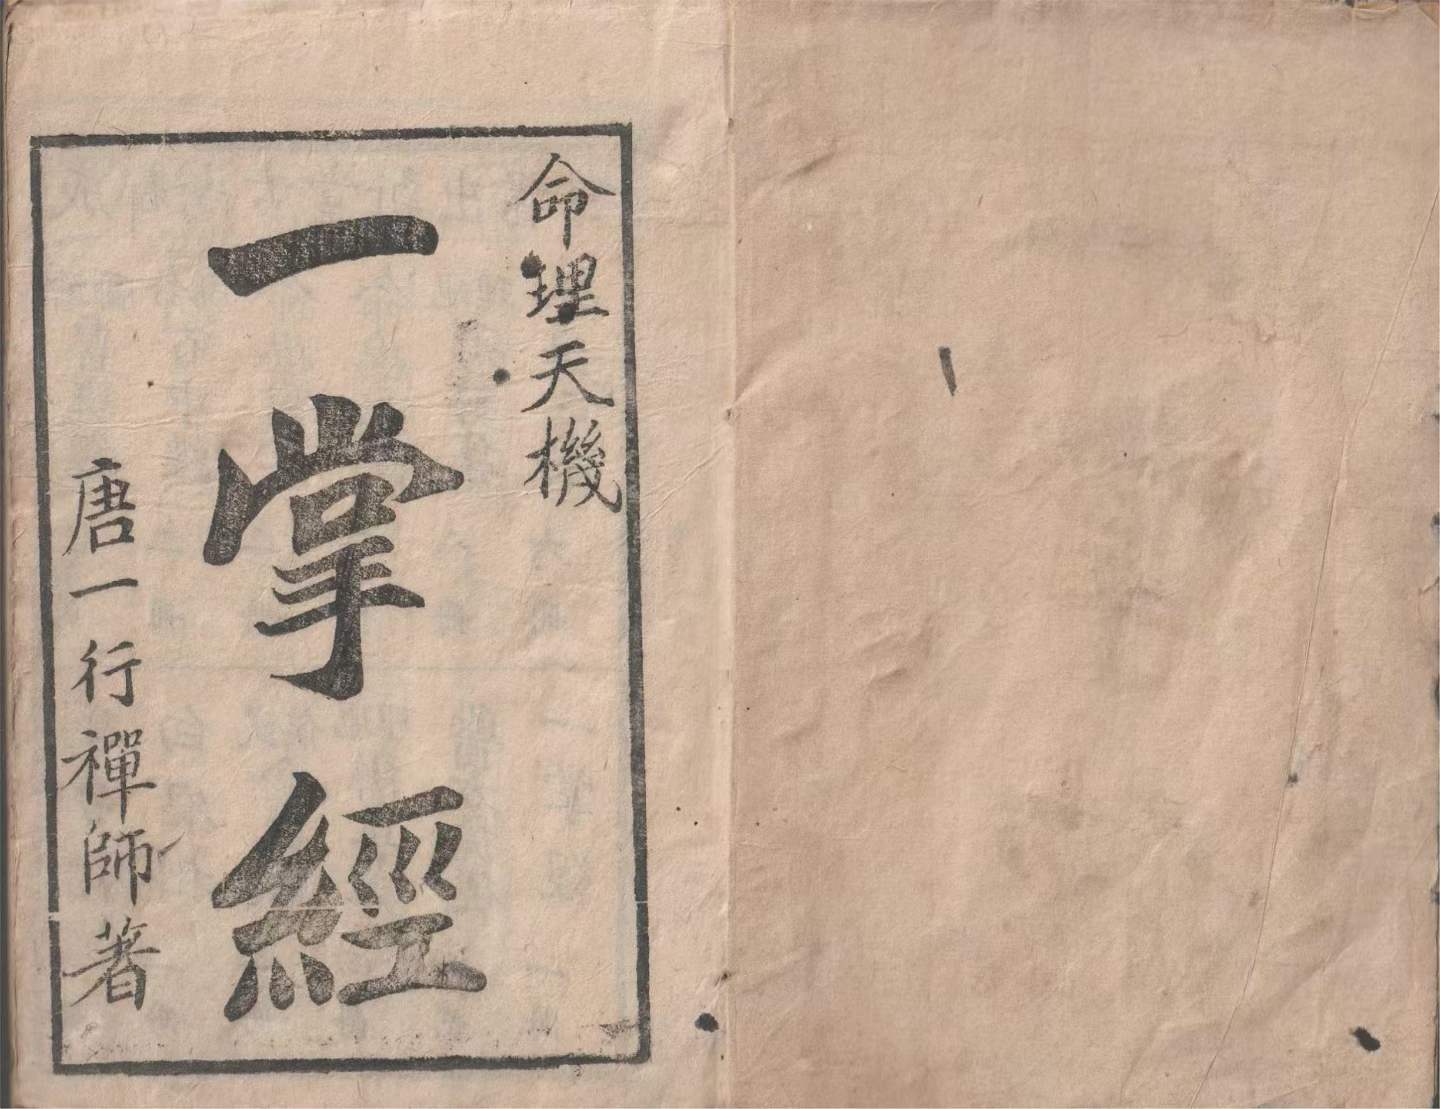 命理天機
一掌經
唐一行禪師著